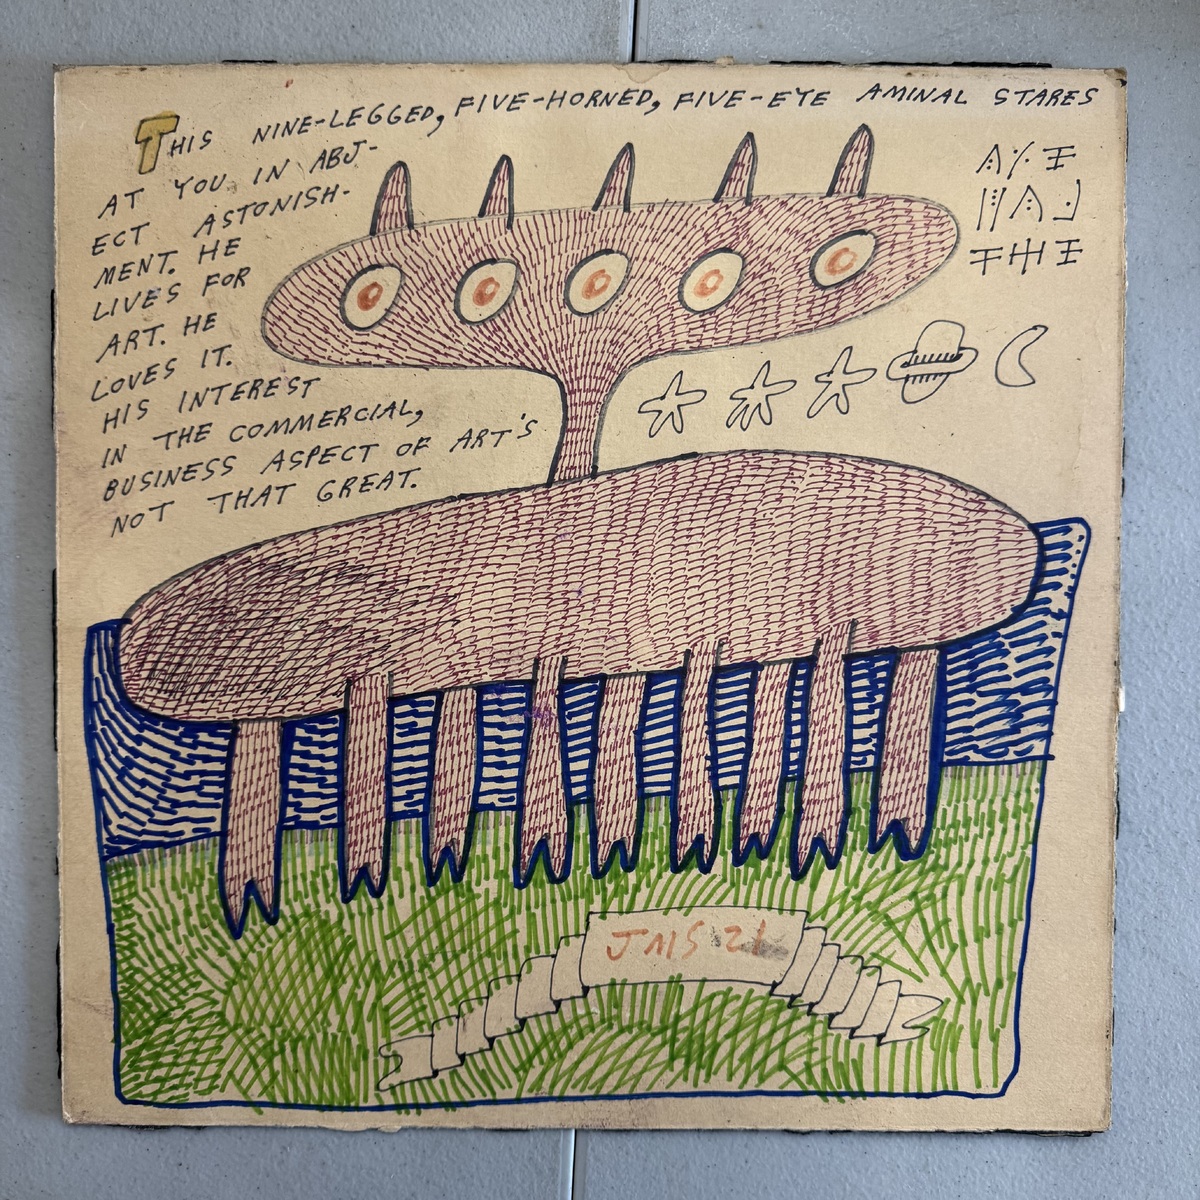 THIS NINE-LEGGED, FIVE-HORNED, FIVE-EYE AMINAL STARES
AT YOU IN ABJ-
ECT ASTONISH-
MENT. HE
LIVES FOR
ART. HE
LOVES IT.
HIS INTEREST
IN THE COMMERCIAL,
BUSINESS ASPECT OF ART'S
NOT THAT GREAT.
21